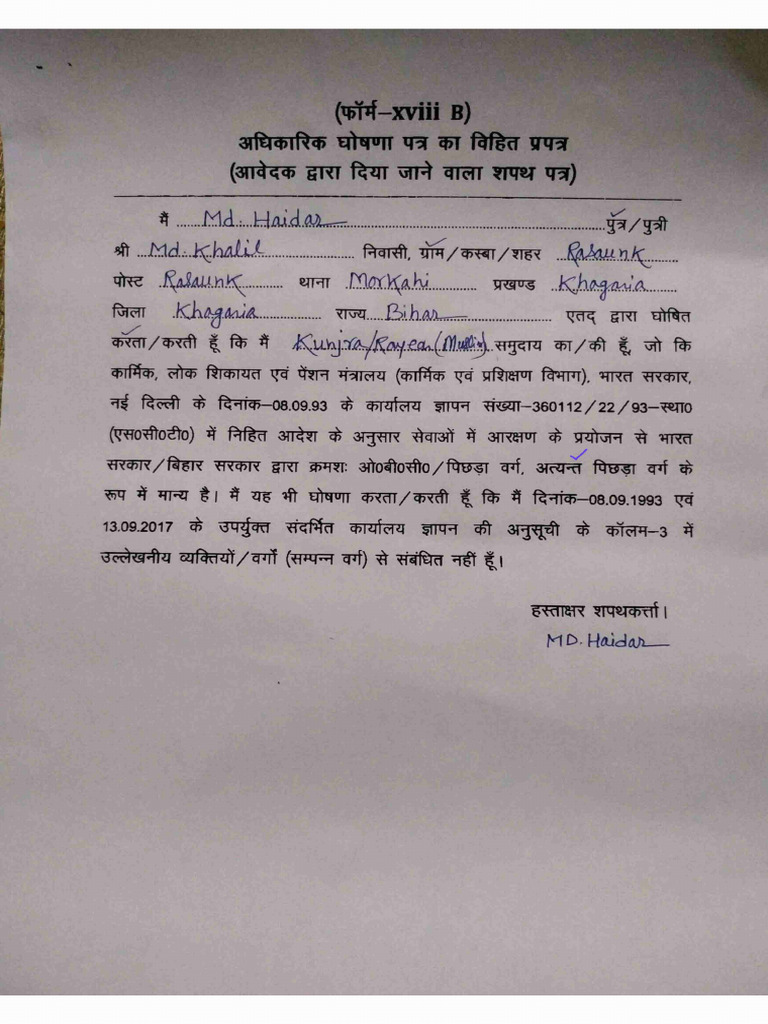 (फॉर्म–xviii B)
अधिकारिक घोषणा पत्र का विहित प्रपत्र
(आवेदक द्वारा दिया जाने वाला शपथ पत्र)
मैं Md. Haidar पुत्र/पुत्री
श्री Md. Khalil निवासी, ग्रोम/कस्बा/शहर Rasaunk
पोस्ट Rasaunk थाना Morkahi प्रखण्ड Khagaria
जिला Khagaria राज्य Bihar एतद् द्वारा घोषित
करता/करती हूँ कि मैं Kunjra/Rayeen (Muslim) समुदाय का/की हूँ, जो कि
कार्मिक, लोक शिकायत एवं पेंशन मंत्रालय (कार्मिक एवं प्रशिक्षण विभाग), भारत सरकार,
नई दिल्ली के दिनांक–08.09.93 के कार्यालय ज्ञापन संख्या–360112/22/93–स्था0
(एस0सी0टी0) में निहित आदेश के अनुसार सेवाओं में आरक्षण के प्रयोजन से भारत
सरकार/बिहार सरकार द्वारा क्रमशः ओ0बी0सी0/पिछड़ा वर्ग, अत्यन्त पिछड़ा वर्ग के
रूप में मान्य है। मैं यह भी घोषणा करता/करती हूँ कि मैं दिनांक–08.09.1993 एवं
13.09.2017 के उपर्युक्त संदर्भित कार्यालय ज्ञापन की अनुसूची के कॉलम–3 में
उल्लेखनीय व्यक्तियों/वर्गों (सम्पन्न वर्ग) से संबंधित नहीं हूँ।
हस्ताक्षर शपथकर्त्ता।
MD. Haidar